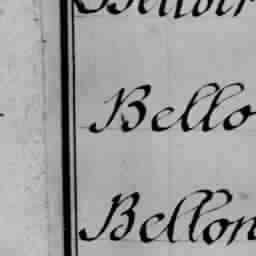 Bello
Bellon